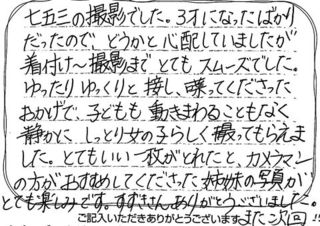 七五三の撮影でした。3才になったばかり
だったので、どうかと心配していましたが
着付け〜撮影まで とても スムーズでした。
ゆったり ゆっくりと 接し、撮ってくださった
おかげで、子どもも 動きまわることもなく
静かに しっとり女の子らしく 撮ってもらえま
した。とてもいい一枚がとれたと、カメラマン
の方が おすすめしてくださった 姉妹の写真が
とても楽しみです。すずきさんありがとうございました。
ご記入いただきありがとうございます また次回!!